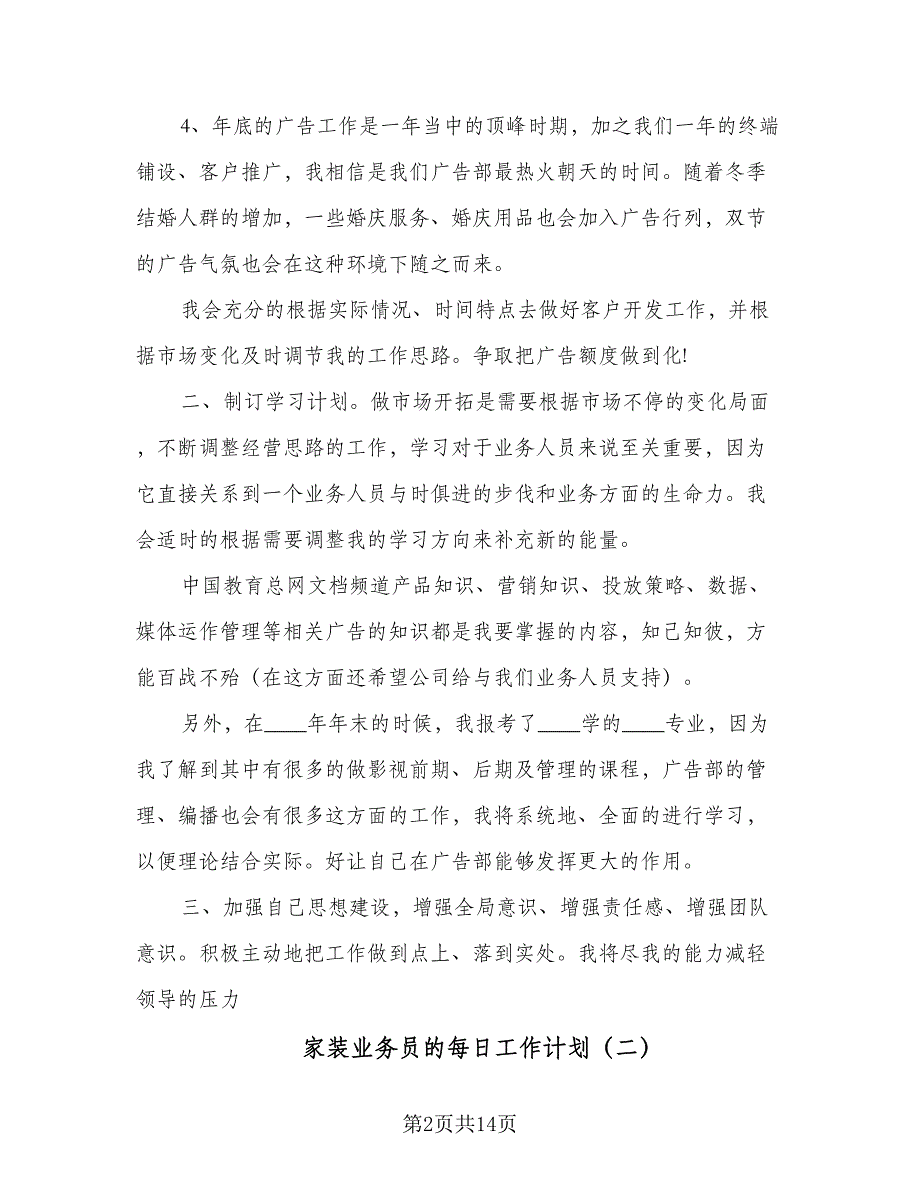 4、年底的广告工作是一年当中的顶峰时期，加之我们一年的终端
铺设、客户推广，我相信是我们广告部最热火朝天的时间。随着冬季
结婚人群的增加，一些婚庆服务、婚庆用品也会加入广告行列，双节
的广告气氛也会在这种环境下随之而来。
我会充分的根据实际情况、时间特点去做好客户开发工作，并根
据市场变化及时调节我的工作思路。争取把广告额度做到化!
二、制订学习计划。做市场开拓是需要根据市场不停的变化局面
，不断调整经营思路的工作，学习对于业务人员来说至关重要，因为
它直接关系到一个业务人员与时俱进的步伐和业务方面的生命力。我
会适时的根据需要调整我的学习方向来补充新的能量。
中国教育总网文档频道产品知识、营销知识、投放策略、数据、
媒体运作管理等相关广告的知识都是我要掌握的内容，知己知彼，方
能百战不殆（在这方面还希望公司给与我们业务人员支持）。
另外，在____年年末的时候，我报考了____学的____专业，因为
我了解到其中有很多的做影视前期、后期及管理的课程，广告部的管
理、编播也会有很多这方面的工作，我将系统地、全面的进行学习，
以便理论结合实际。好让自己在广告部能够发挥更大的作用。
三、加强自己思想建设，增强全局意识、增强责任感、增强团队
意识。积极主动地把工作做到点上、落到实处。我将尽我的能力减轻
领导的压力
家装业务员的每日工作计划（二）
第2页共14页